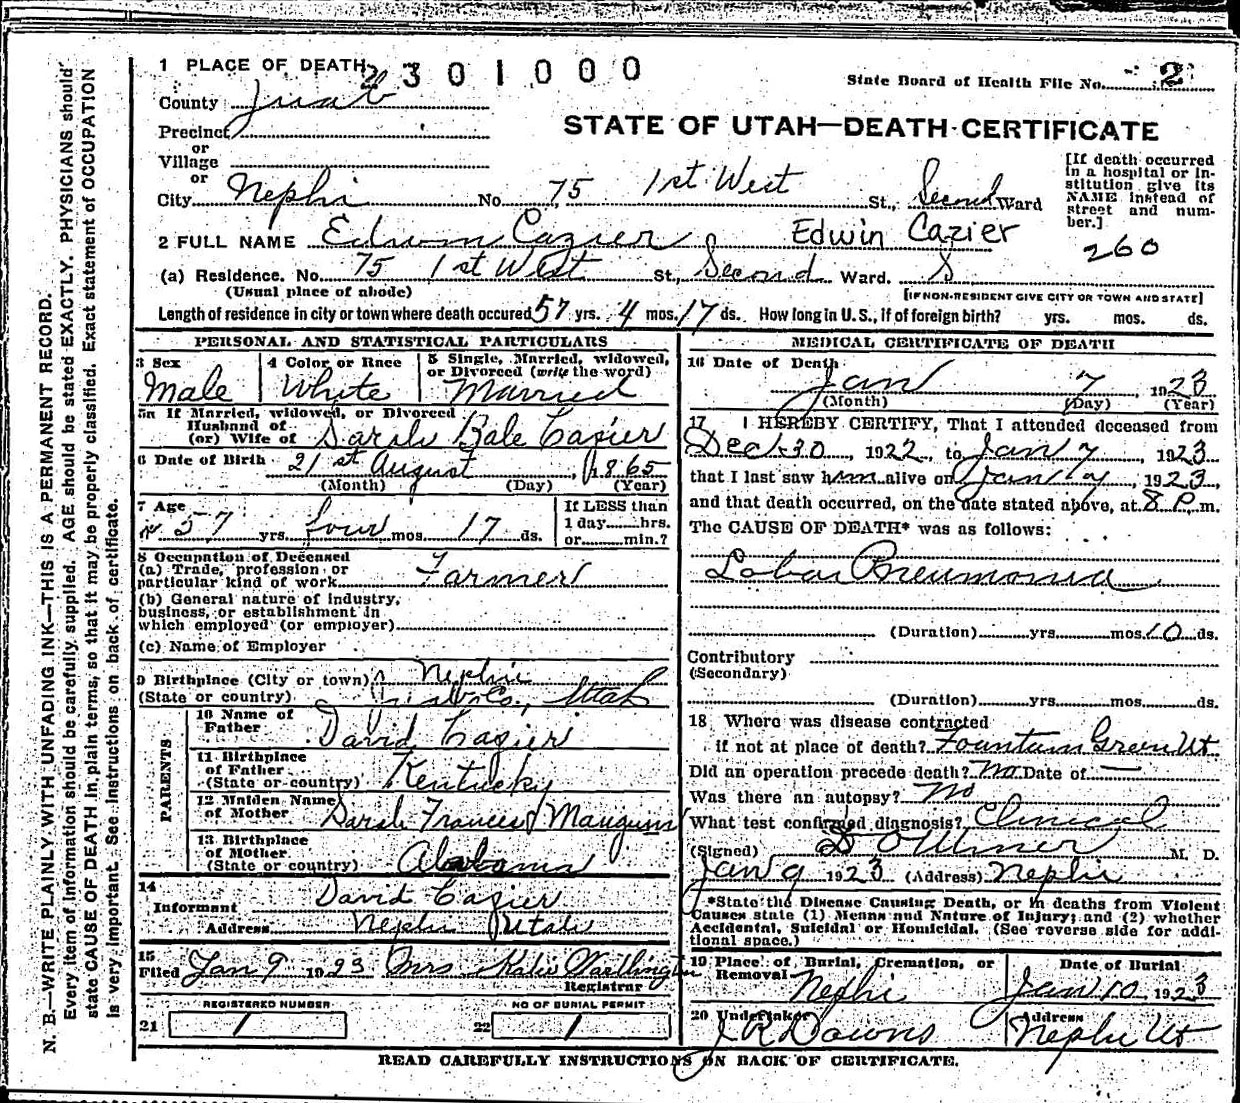 N. B.—WRITE PLAINLY WITH UNFADING INK—THIS IS A PERMANENT RECORD.
Every item of information should be carefully supplied. AGE should be stated EXACTLY. PHYSICIANS should
state CAUSE OF DEATH in plain terms, so that it may be properly classified. Exact statement of OCCUPATION
is very important. See Instructions on back of certificate.
1 PLACE OF DEATH
2301000
State Board of Health File No. 2
County Juab
STATE OF UTAH—DEATH CERTIFICATE
Precinct
or
Village
or
City Nephi No. 75 1st West St., Second Ward
[If death occurred
in a hospital or in-
stitution give its
NAME instead of
street and num-
ber.]
260
2 FULL NAME Edwin Cazier Edwin Cazier
(a) Residence. No. 75 1st West St., Second Ward. S
(Usual place of abode)
[IF NON-RESIDENT GIVE CITY OR TOWN AND STATE]
Length of residence in city or town where death occured 57 yrs. 4 mos. 17 ds. How long in U. S., if of foreign birth? yrs. mos. ds.
PERSONAL AND STATISTICAL PARTICULARS
3 Sex
Male
4 Color or Race
White
5 Single, Married, widowed,
or Divorced (write the word)
Married
5a If Married, widowed, or Divorced
Husband of
(or) Wife of Sarah Bale Cazier
6 Date of Birth 21st August, 1865
(Month) (Day) (Year)
7 Age
57 yrs. four mos. 17 ds.
If LESS than
1 day hrs.
or min.?
8 Occupation of Deceased
(a) Trade, profession or
particular kind of work Farmer
(b) General nature of industry,
business, or establishment in
which employed (or employer)
(c) Name of Employer
9 Birthplace (City or town) Nephi
(State or country) Juab Co., Utah
PARENTS
10 Name of
Father David Cazier
11 Birthplace
of Father
(State or country) Kentucky
12 Maiden Name
of Mother Sarah Frances Mangum
13 Birthplace
of Mother
(State or country) Alabama
14
Informant David Cazier
Address Nephi Utah
15
Filed Jan 9 1923 Mrs Katie Worthington
Registrar
REGISTERED NUMBER
21 1
NO OF BURIAL PERMIT
22 1
MEDICAL CERTIFICATE OF DEATH
16 Date of Death
Jan 7, 1923
(Month) (Day) (Year)
17 I HEREBY CERTIFY, That I attended deceased from
Dec 30, 1922, to Jan 7, 1923
that I last saw him alive on Jan 7, 1923,
and that death occurred, on the date stated above, at 8 P. m.
The CAUSE OF DEATH* was as follows:
Lobar Pneumonia
(Duration) yrs. mos. 10 ds.
Contributory
(Secondary)
(Duration) yrs. mos. ds.
18 Where was disease contracted
if not at place of death? Fountain Green Ut
Did an operation precede death? No Date of —
Was there an autopsy? No
What test confirmed diagnosis? Clinical
(Signed) M. D.
Jan 9 1923 (Address) Nephi
*State the Disease Causing Death, or in deaths from Violent
Causes state (1) Means and Nature of Injury; and (2) whether
Accidental, Suicidal or Homicidal. (See reverse side for addi-
tional space.)
19 Place of Burial, Cremation, or
Removal Nephi
Date of Burial
Jan 10 1923
20 Undertaker
J R Downs
Address
Nephi Ut
READ CAREFULLY INSTRUCTIONS ON BACK OF CERTIFICATE.